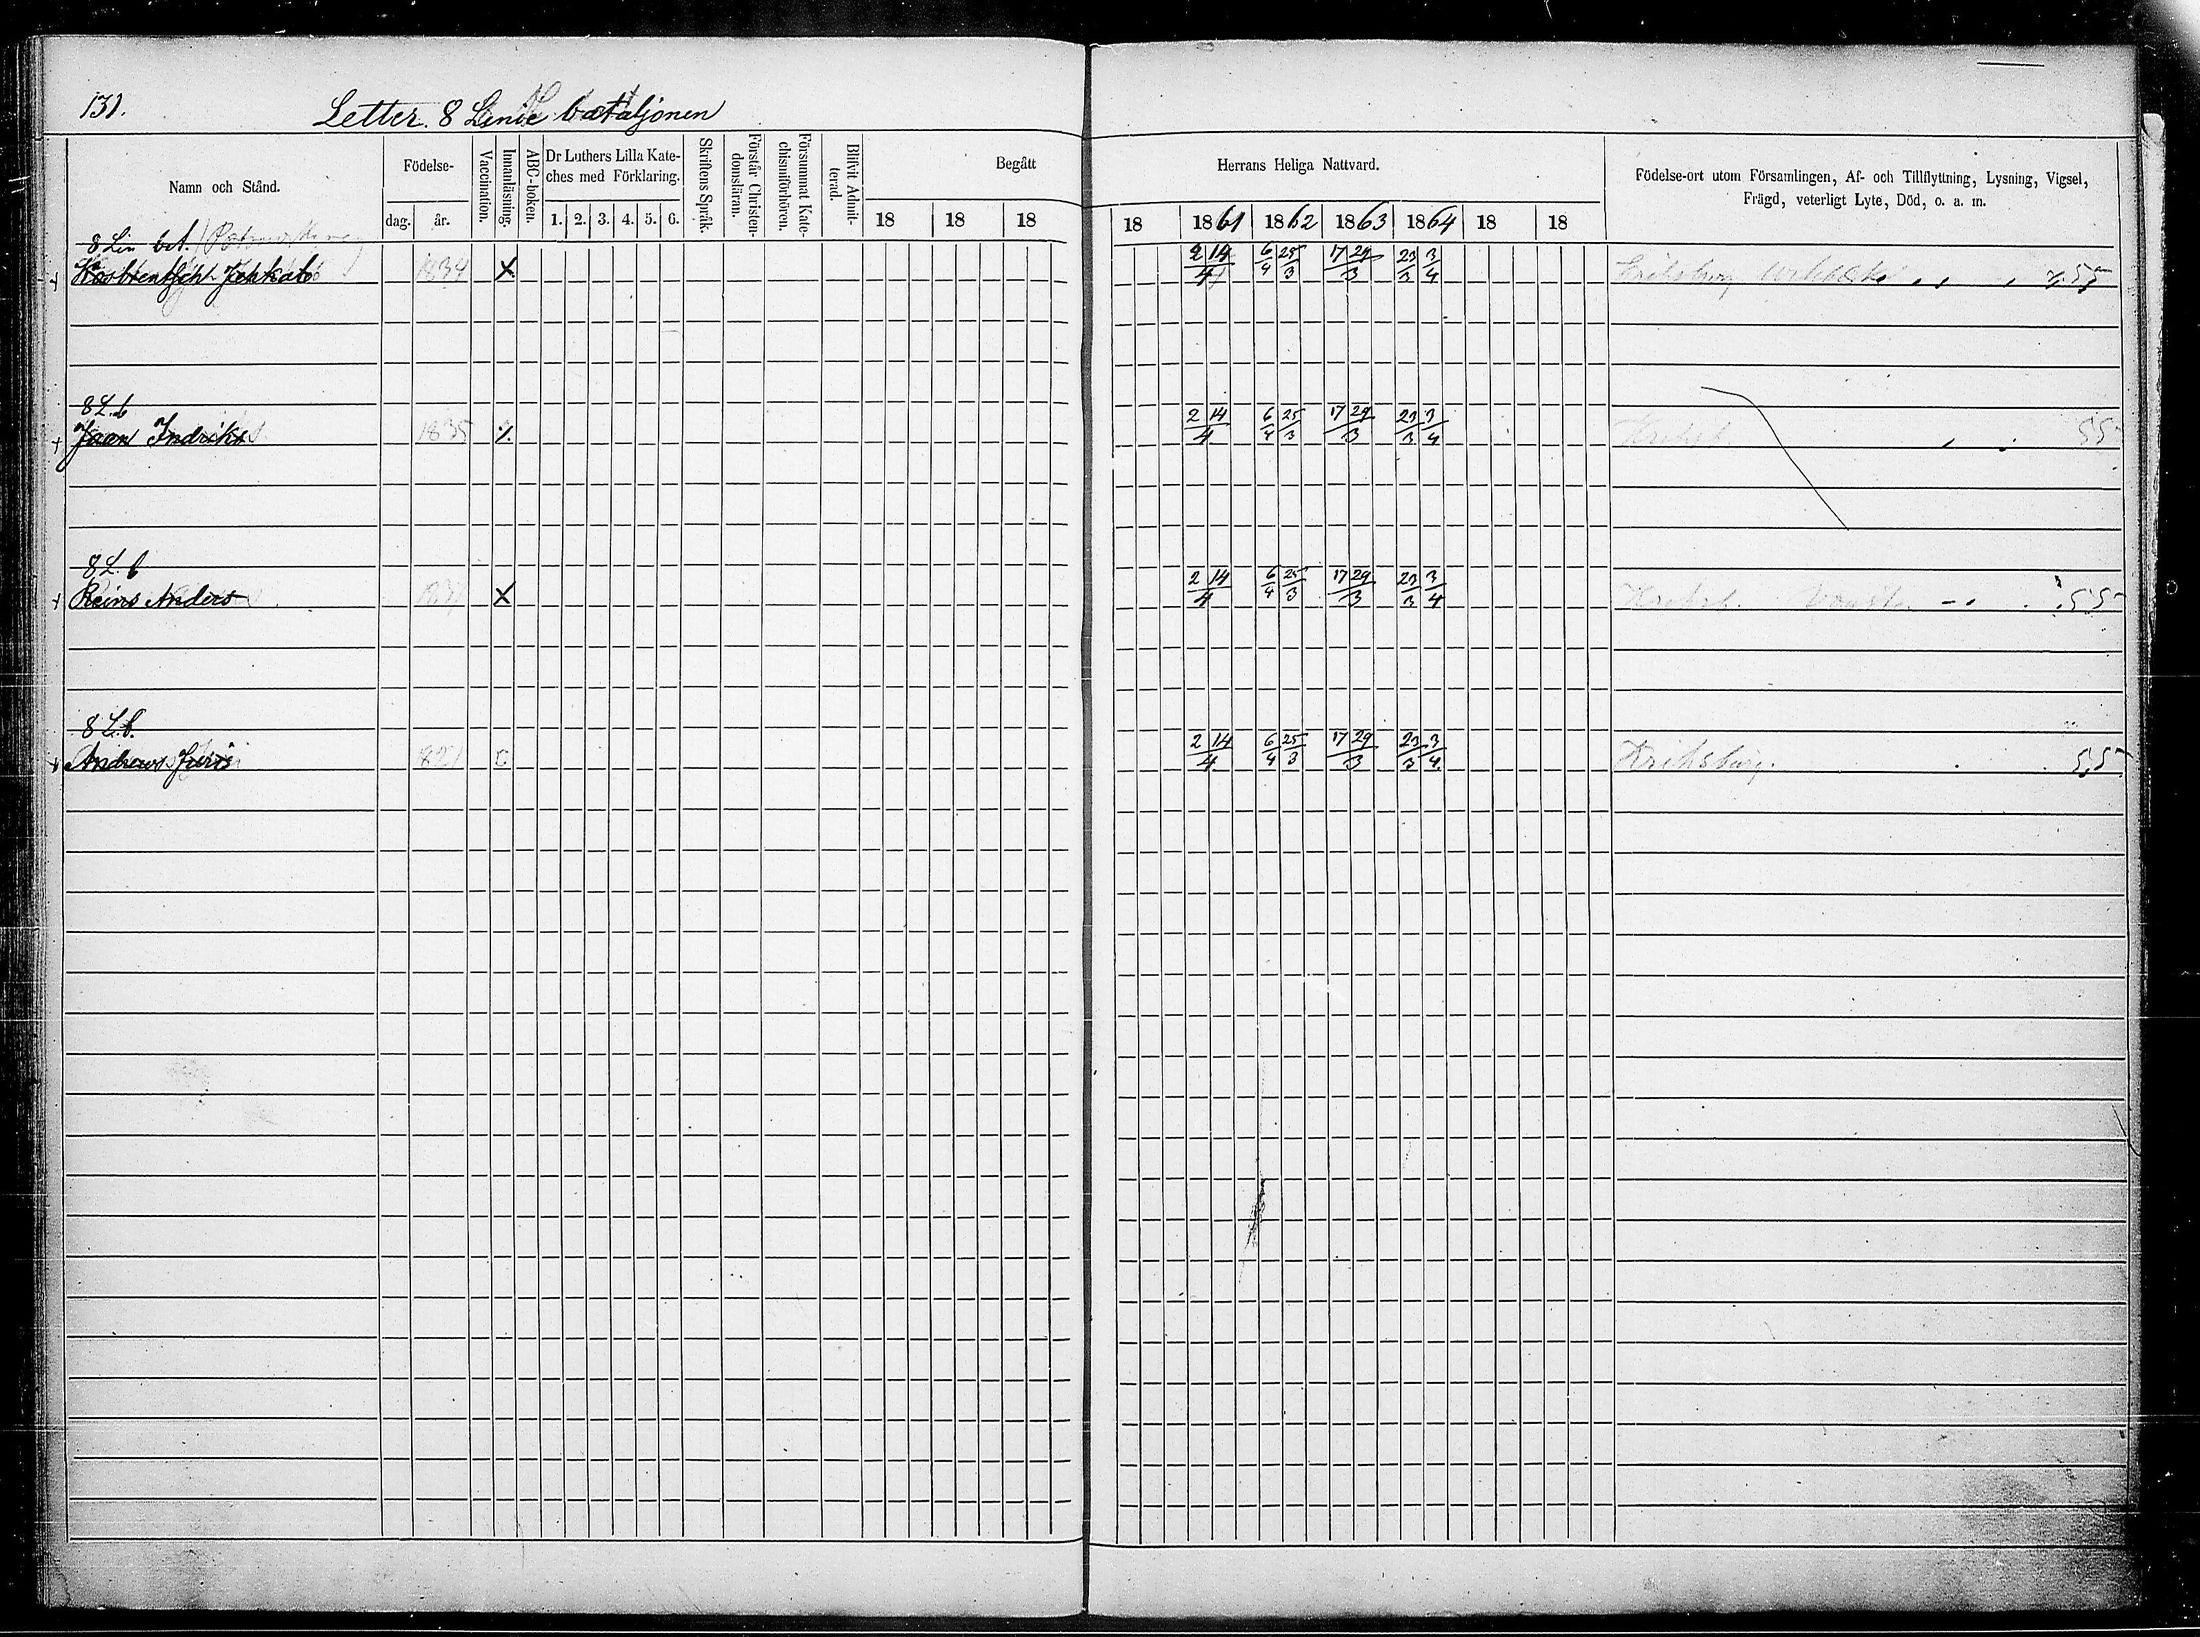 131.
Letter. 8 Linie bataljonen
Namn och Stånd.
Födelse-
dag. år.
Vaccination.
Innanläsning.
ABC-boken.
Dr Luthers Lilla Kate-
ches med Förklaring.
1. 2. 3. 4. 5. 6.
Skriftens Språk.
Förstår Christen-
domsläran.
Försummat Kate-
chismiförhören.
Blifvit Admit-
terad.
Begått
18 18 18
Herrans Heliga Nattvard.
18 1861 1862 1863 1864 18 18
Födelse-ort utom Församlingen, Af- och Tillflyttning, Lysning, Vigsel,
Frägd, veterligt Lyte, Död, o. a. m.
8 Lin bat.
Jehkab 1834 X 2 14/4 6/4 25/3 17 29/3 23/3 3/4 55
8 L. b
Jaan Indriks 1835 2 14/4 6/4 25/3 17 29/3 23/3 3/4 55
8 L. b
Reins Anders X 2 14/4 6/4 25/3 17 29/3 23/3 3/4 55
8 L. b.
Andrews Juris 2 14/4 6/4 25/3 17 29/3 23/3 3/4 55